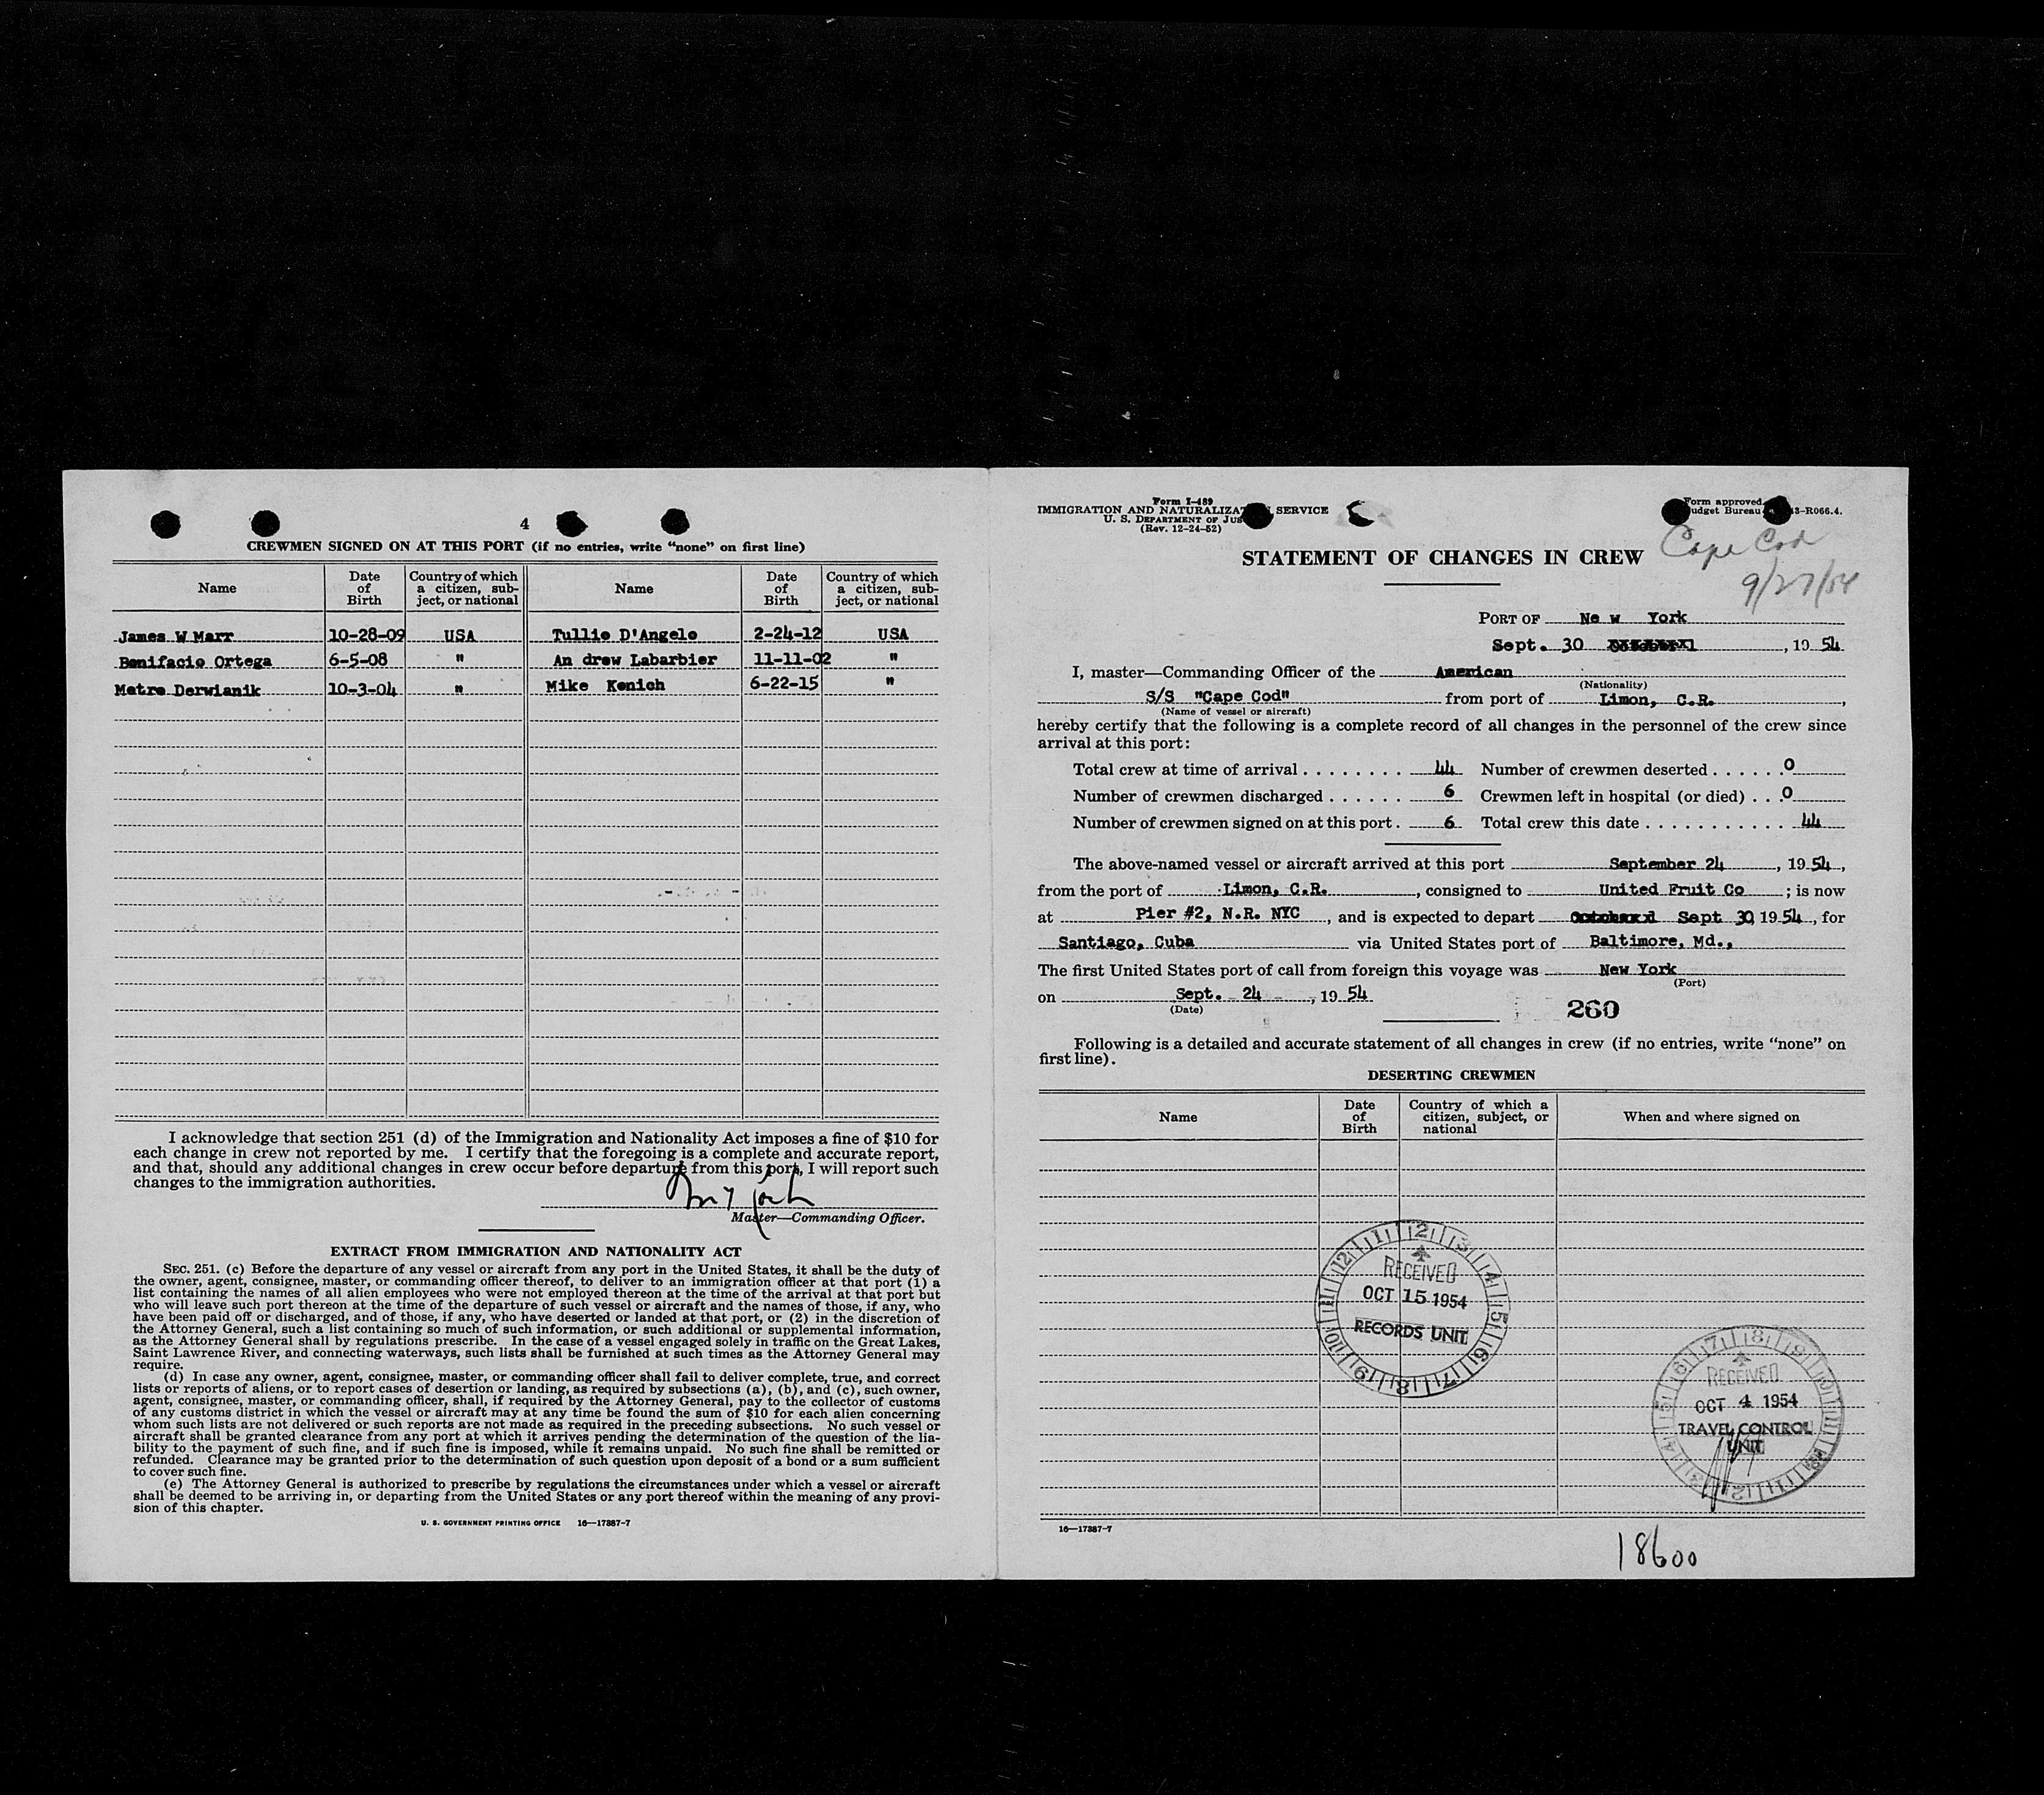 4
CREWMEN SIGNED ON AT THIS PORT (if no entries, write “none” on first line)
Name | Date of Birth | Country of which a citizen, sub-ject, or national | Name | Date of Birth | Country of which a citizen, sub-ject, or national
James W Marr | 10-28-09 | USA | Tullio D'Angelo | 2-24-12 | USA
Bonifacio Ortega | 6-5-08 | " | An drew Labarbier | 11-11-02 | "
Metro Derwianik | 10-3-04 | " | Mike Konich | 6-22-15 | "
I acknowledge that section 251 (d) of the Immigration and Nationality Act imposes a fine of $10 for
each change in crew not reported by me. I certify that the foregoing is a complete and accurate report,
and that, should any additional changes in crew occur before departure from this port, I will report such
changes to the immigration authorities.
Master—Commanding Officer.
EXTRACT FROM IMMIGRATION AND NATIONALITY ACT
SEC. 251. (c) Before the departure of any vessel or aircraft from any port in the United States, it shall be the duty of
the owner, agent, consignee, master, or commanding officer thereof, to deliver to an immigration officer at that port (1) a
list containing the names of all alien employees who were not employed thereon at the time of the arrival at that port but
who will leave such port thereon at the time of the departure of such vessel or aircraft and the names of those, if any, who
have been paid off or discharged, and of those, if any, who have deserted or landed at that port, or (2) in the discretion of
the Attorney General, such a list containing so much of such information, or such additional or supplemental information,
as the Attorney General shall by regulations prescribe. In the case of a vessel engaged solely in traffic on the Great Lakes,
Saint Lawrence River, and connecting waterways, such lists shall be furnished at such times as the Attorney General may
require.
(d) In case any owner, agent, consignee, master, or commanding officer shall fail to deliver complete, true, and correct
lists or reports of aliens, or to report cases of desertion or landing, as required by subsections (a), (b), and (c), such owner,
agent, consignee, master, or commanding officer, shall, if required by the Attorney General, pay to the collector of customs
of any customs district in which the vessel or aircraft may at any time be found the sum of $10 for each alien concerning
whom such lists are not delivered or such reports are not made as required in the preceding subsections. No such vessel or
aircraft shall be granted clearance from any port at which it arrives pending the determination of the question of the lia-
bility to the payment of such fine, and if such fine is imposed, while it remains unpaid. No such fine shall be remitted or
refunded. Clearance may be granted prior to the determination of such question upon deposit of a bond or a sum sufficient
to cover such fine.
(e) The Attorney General is authorized to prescribe by regulations the circumstances under which a vessel or aircraft
shall be deemed to be arriving in, or departing from the United States or any port thereof within the meaning of any provi-
sion of this chapter.
U. S. GOVERNMENT PRINTING OFFICE 16—17387-7
Form I-489
IMMIGRATION AND NATURALIZAT SERVICE
U. S. DEPARTMENT OF JUS
(Rev. 12-24-52)
Form approved.
udget Bureau 43-R066.4.
Cape Cod
9/27/54
STATEMENT OF CHANGES IN CREW
PORT OF Ne w York
Sept. 30, 19 54
I, master—Commanding Officer of the American
(Nationality)
S/S "Cape Cod" from port of Limon, C.R.,
(Name of vessel or aircraft)
hereby certify that the following is a complete record of all changes in the personnel of the crew since
arrival at this port:
Total crew at time of arrival 44 Number of crewmen deserted 0
Number of crewmen discharged 6 Crewmen left in hospital (or died) 0
Number of crewmen signed on at this port 6 Total crew this date 44
The above-named vessel or aircraft arrived at this port September 24, 19 54,
from the port of Limon, C.R., consigned to United Fruit Co; is now
at Pier #2, N.R. NYC, and is expected to depart Sept 30, 19 54, for
Santiago, Cuba via United States port of Baltimore, Md.,
The first United States port of call from foreign this voyage was New York
(Port)
on Sept. 24, 19 54
(Date)
260
Following is a detailed and accurate statement of all changes in crew (if no entries, write “none” on
first line).
DESERTING CREWMEN
Name | Date of Birth | Country of which a citizen, subject, or national | When and where signed on
12 1 2 3 4 5 6 7 8 9 10 11
RECEIVED
OCT 15 1954
RECORDS UNIT
RECEIVED
OCT 4 1954
TRAVEL CONTROL
UNIT
16—17387-7
18600